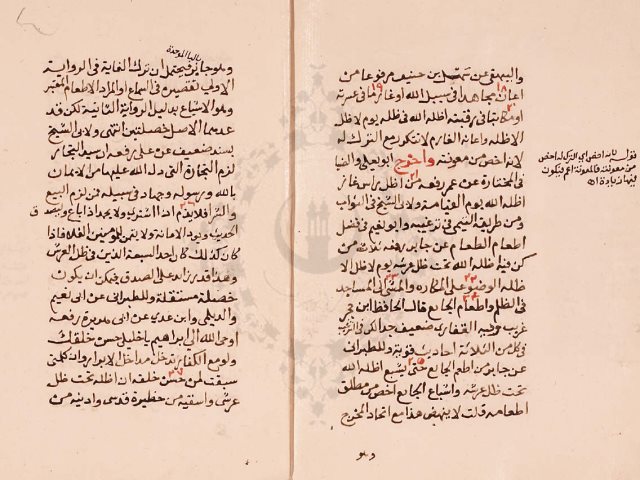 والبيهقي عن سهل بن حنيف مرفوعا من
اعان مجاهدا في سبيل الله او غارما في عسرته
او مكاتبا في رقبته اظله الله في ظله يوم لا ظل
الا ظله واعانة الغارم لا تتكرر مع الترك له
لانه اخص من معونته واخرج ابو يعلى والضيا
في المختارة عن عمر رفعه من اظل راس غاز
اظله الله يوم القيامة ولابي الشيخ في الثواب
ومن طريقه التيمي في ترغيبه وابو نعيم في فضل
اطعام الطعام عن جابر رفعه ثلاث من
كن فيه اظله الله تحت ظل عرشه يوم لا ظل الا
ظله الوضوء على المكاره والمشي الى المساجد
في الظلم واطعام الجايع قال الحافظ ابن حجر
غريب وفيه الغفاري ضعيف جدا لكن في الترغيب
في كل من الثلاثة احاديث قوية وللطبراني
عن جابر من اطعم الجايع حتى يشبع اظله الله
تحت ظل عرشه واشباع الجايع اخص من مطلق
اطعامه قلت لا ينهض هذا مع اتحاد المخرج
وهو
قوله لانه اخص اي الترك له اخص
من معونته فالمعونة اعم فيكون
بالباء الموحدة
وهو جابر فيحتمل ان ترك الغاية في الرواية
الاولى تقصير في السماع او المراد الاطعام المعتبر
وهو الاشباع بدليل الرواية الثانية لكن قد
عدهما الاصل خصلتين انتهى ولابي الشيخ
بسند ضعيف عن علي رفعه ان سيد التجار
لزم التجارة التي دله الله عليها من الايمان
بالله ورسوله وجهاد في سبيله فمن لزم البيع
والشرا فلا يذم ان اشترى ولا يحمد اذا باع وليصدق
الحديث ويود الامانة ولا يتمن للمومنين الغلا فاذا
كان كذلك كان احد السبعة الذين في ظل العرش
وهذا قدر زايد على الصدق فيمكن ان يكون
خصلة مستقلة وللطبراني عن ابي نعيم
والديلمي وابن عدي عن ابي هريرة رفعه
اوحى الله الى ابراهيم يا خليلي حسن خلقك
ولو مع الكفار تدخل مداخل الابرار وان كلمتي
سبقت لمن حسن خلقه ان اظله تحت ظل
عرشي واسقيه من حظيرة قدسي وادنيه من